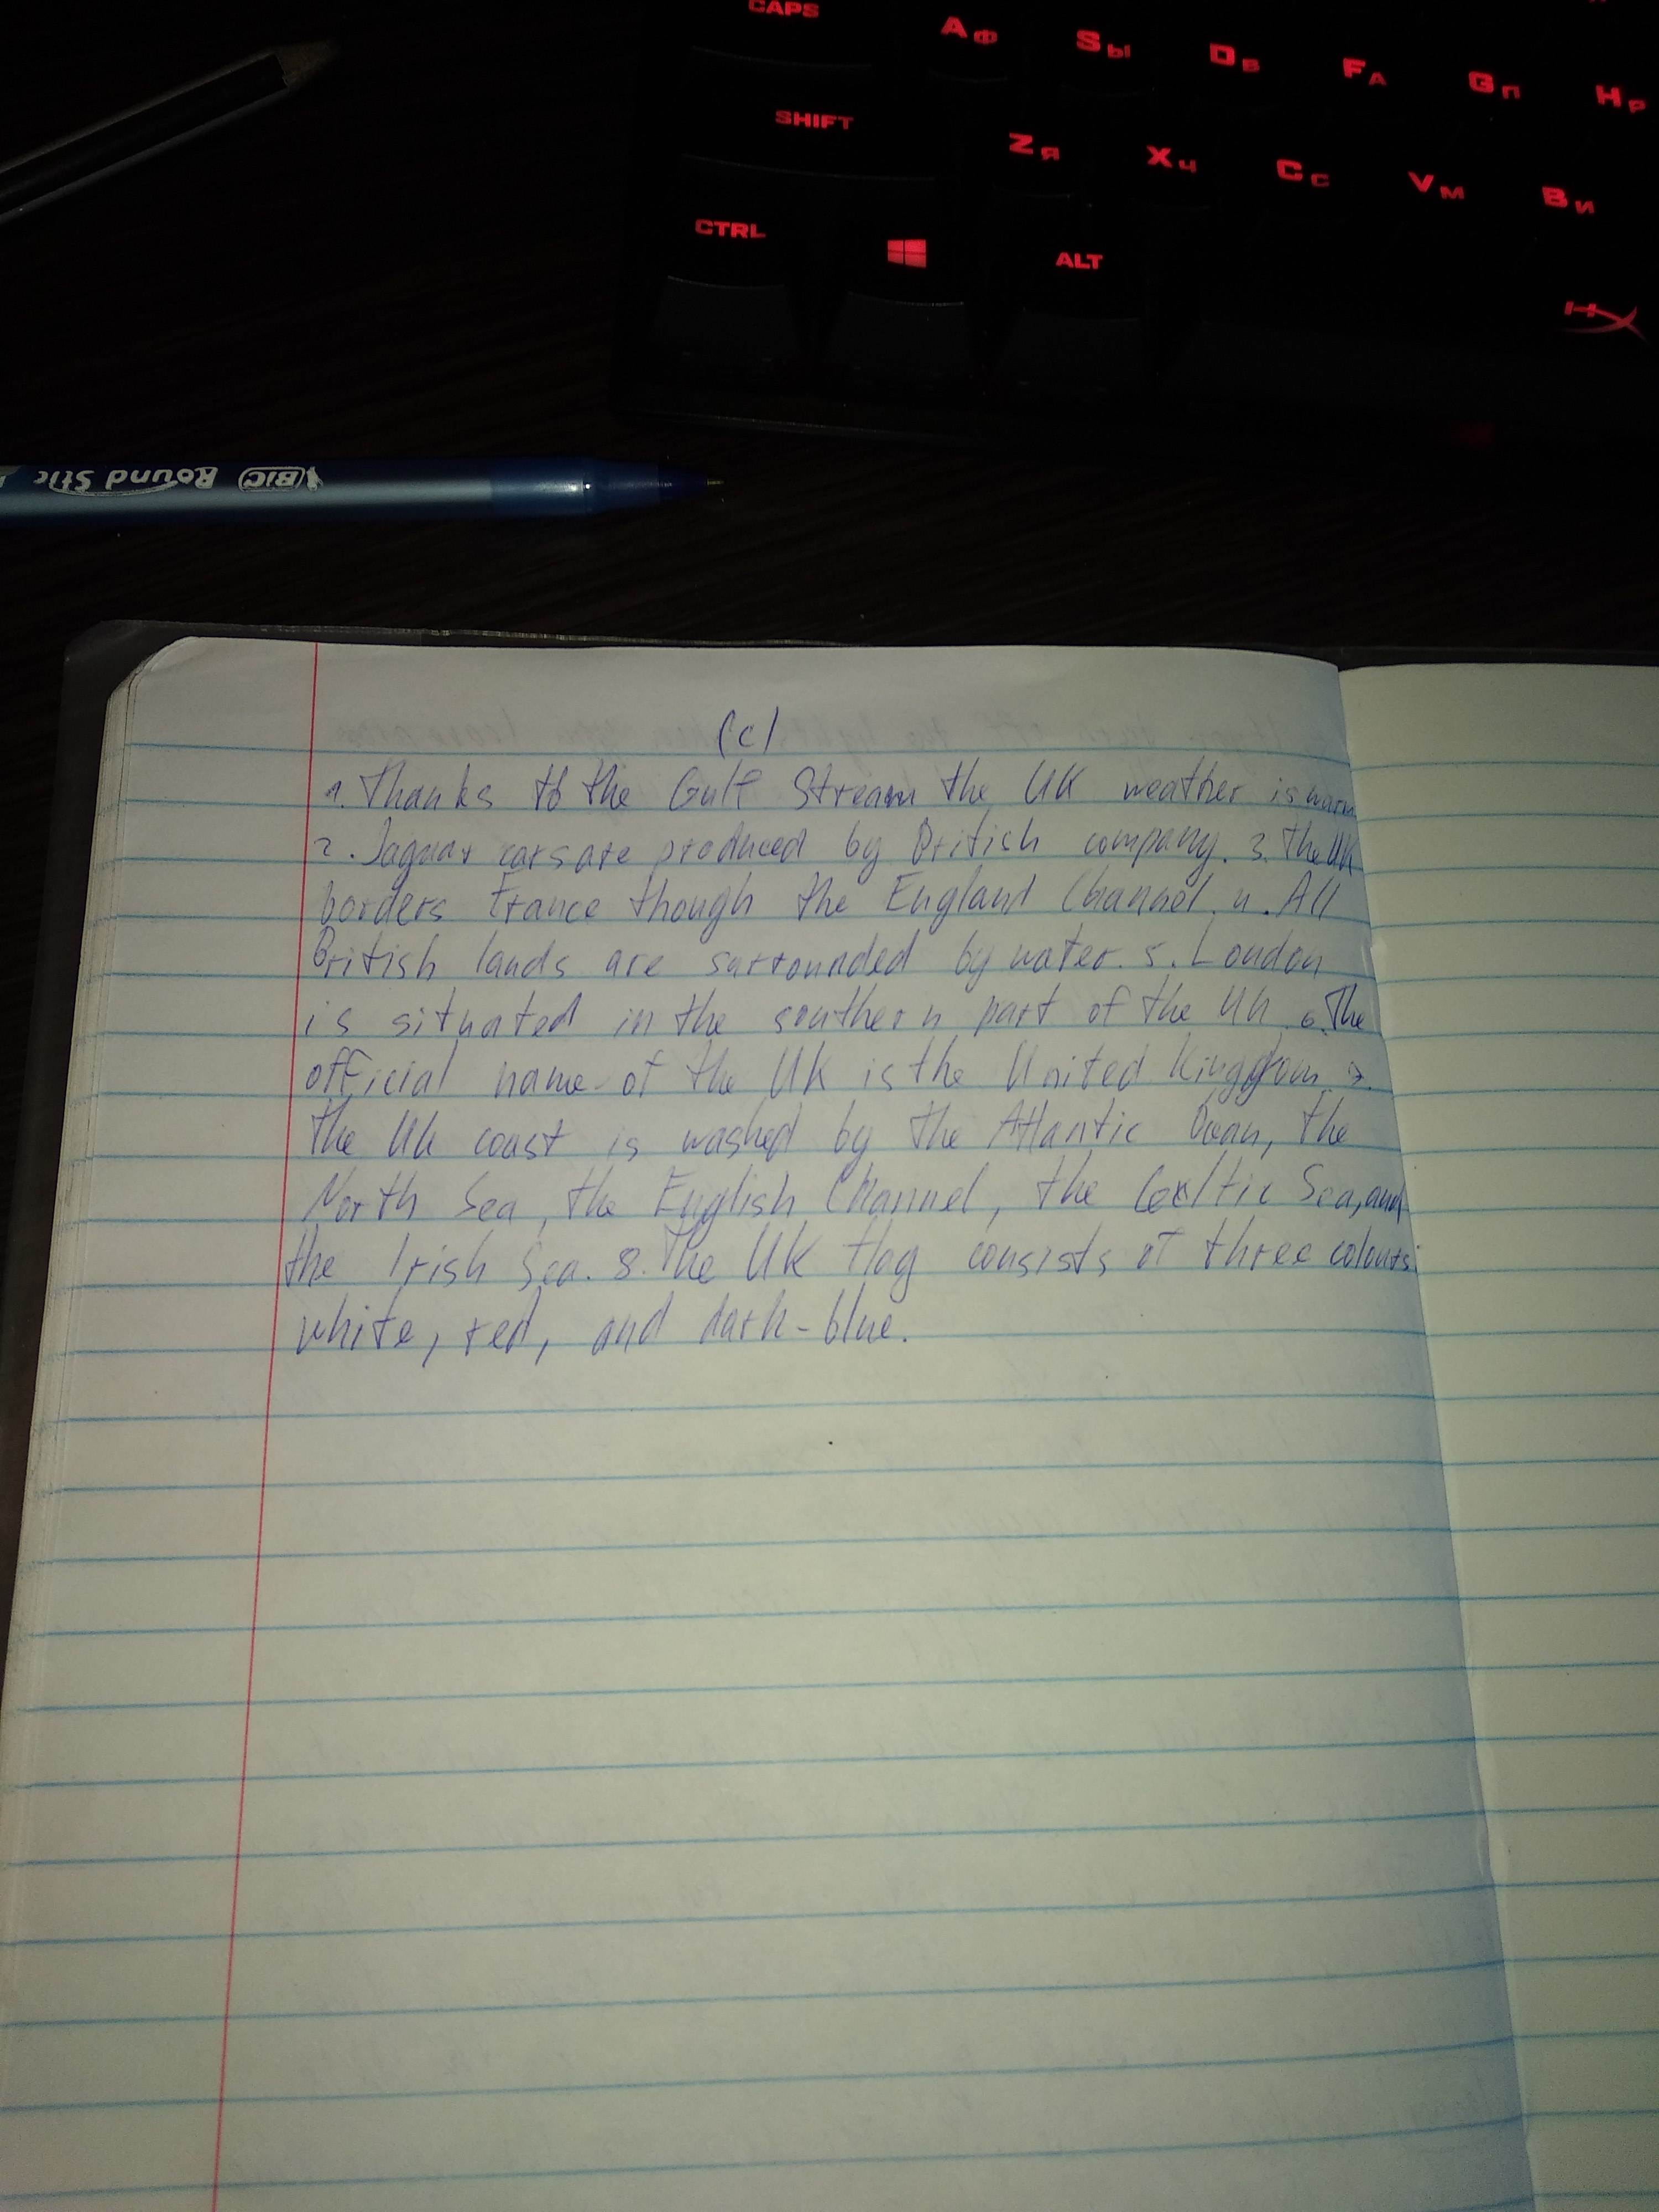 CAPS
Aф Sы Dв Fа Gп Hр
SHIFT
Zя Xч Cс Vм Bи
CTRL ALT
HX
BIC Round Stic
(c)
1. Thanks to the Gulf Stream the UK weather is warm
2. Jaguar cars are produced by British company. 3. The UK
borders France though the England Channel. 4. All
British lands are surrounded by water. 5. London
is situated in the southern part of the UK. 6. The
official name of the UK is the United Kingdom. 7.
The UK coast is washed by the Atlantic Ocean, the
North Sea, the English Channel, the Celtic Sea, and
the Irish Sea. 8. The UK flag consists of three colours:
white, red, and dark-blue.